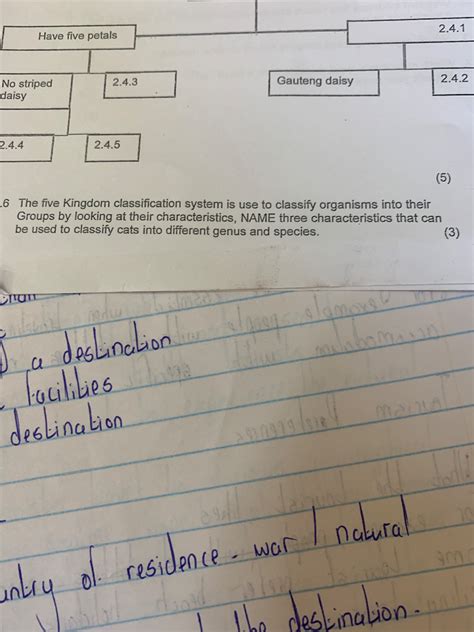 2.4.1
Have five petals
No striped
daisy
2.4.3
Gauteng daisy
2.4.2
2.4.4
2.4.5
(5)
.6 The five Kingdom classification system is use to classify organisms into their
Groups by looking at their characteristics, NAME three characteristics that can
be used to classify cats into different genus and species. (3)
a destination
facilities
destination
residence - war / natural
the destination.